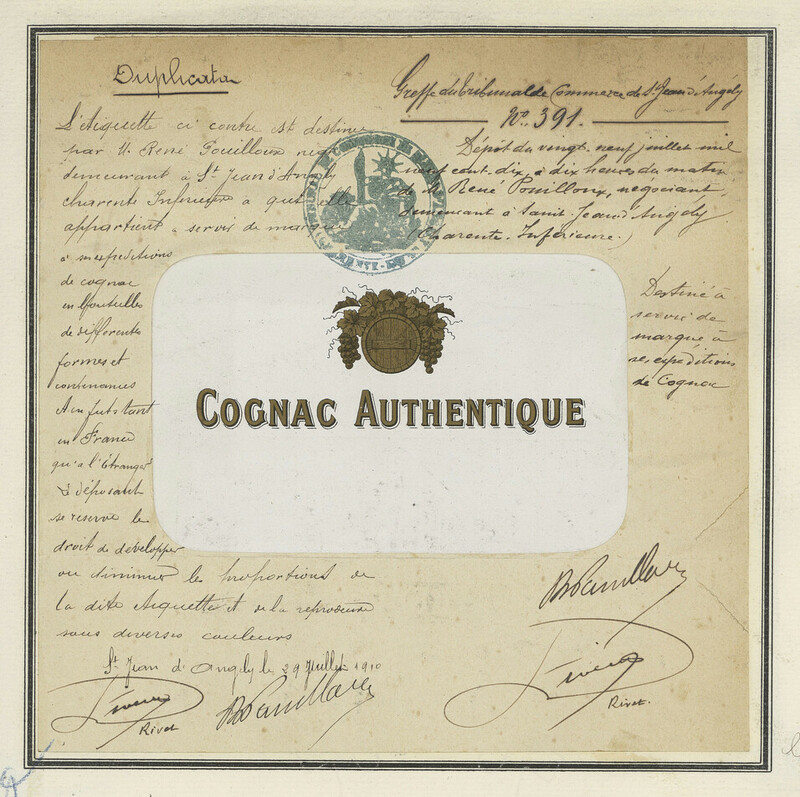 Duplicata
L'étiquette ci contre est destinée
par M. René Pouilloux négt
demeurant à St Jean d'Angély
Charente Inférieure à qui elle
appartient à servir de marque
à ses expéditions
de cognac
en bouteilles
de différentes
formes et
contenances
et en futs tant
en France
qu'à l'Étranger
Le déposant
se réserve le
droit de développer
ou diminuer les proportions de
la dite étiquette et de la reproduire
sous diverses couleurs
St Jean d'Angély le 29 Juillet 1910
Rivet
Greffe du Tribunal de Commerce de St Jean d'Angély
No. 391.
Dépôt du vingt neuf juillet mil
neuf cent dix, à dix heures du matin
de M. René Pouilloux, négociant,
demeurant à Saint-Jean-d'Angély
(Charente-Inférieure.)
Destiné à
servir de
marque à
ses expéditions
de Cognac
Rivet.
COGNAC AUTHENTIQUE